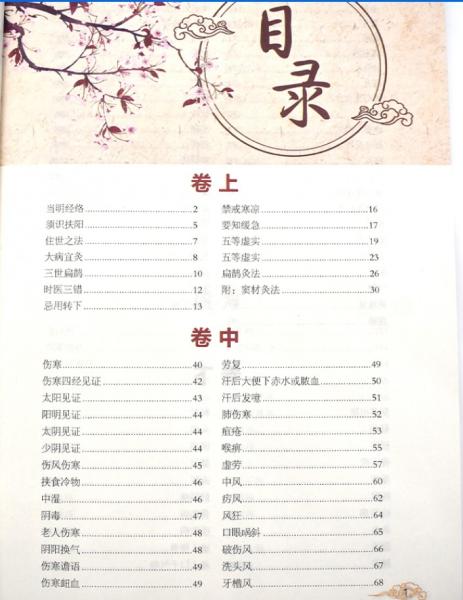 目录
卷上
当明经络 2
须识扶阳 5
住世之法 7
大病宜灸 8
三世扁鹊 10
时医三错 12
忌用转下 13
禁戒寒凉 16
要知缓急 17
五等虚实 19
五等虚实 23
扁鹊灸法 26
附：窦材灸法 30
卷中
伤寒 40
伤寒四经见证 42
太阳见证 43
阳明见证 44
太阴见证 44
少阴见证 44
伤风伤寒 45
挟食冷物 46
中湿 46
阴毒 47
老人伤寒 48
阴阳换气 48
伤寒谵语 49
伤寒衄血 49
劳复 49
汗后大便下赤水或脓血 50
汗后发噎 51
肺伤寒 52
疽疮 53
喉痹 55
虚劳 57
中风 60
疠风 62
风狂 64
口眼㖞斜 65
破伤风 66
洗头风 67
牙槽风 68
1